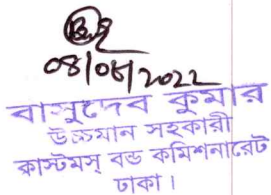 08/08/2022
বাসুদেব কুমার
উচ্চমান সহকারী
কাস্টমস্ বন্ড কমিশনারেট
ঢাকা।